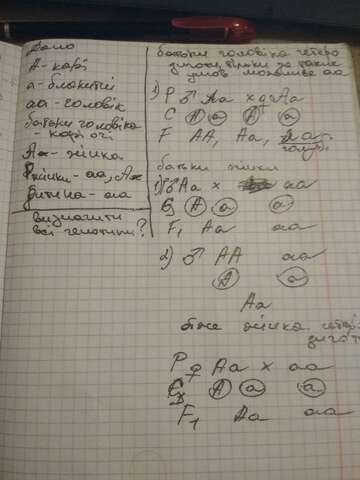 Дано
А - карі
а - блакитні
аа - головік
батьки головіка
- карі очі
Ах - жінка
Ржінки - аа, Ах
Дитина - аа
визначити
всі генотипи?
батьки головіка гетеро
зиготи, тільки за таких
умов можливе аа
1) Р ♂ Аа х ♀ Аа
G А а А а
F АА, Аа, аа
батьки жінки
1) Р ♂ Аа х аа
G А а а
F₁ Аа аа
2) ♂ АА аа
А а
Аа
отже жінка гетеро
зигота
Р ♀ Аа х аа
G А а а
F₁ Аа аа